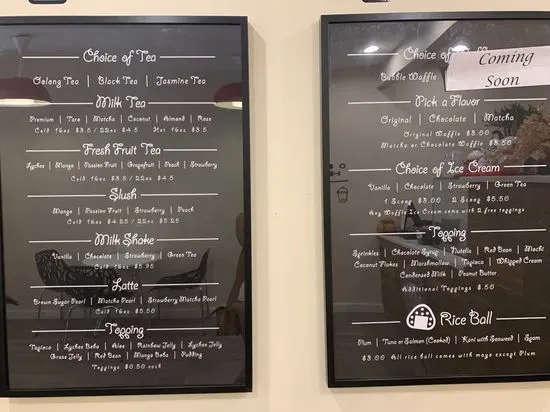 Choice of Tea
Oolong Tea | Black Tea | Jasmine Tea
Milk Tea
Premium | Taro | Matcha | Coconut | Almond | Rose
Cold 16oz $3.5 / 22oz $4.5 Hot 16oz $3.5
Fresh Fruit Tea
Lychee | Mango | Passion Fruit | Grapefruit | Peach | Strawberry
Cold 16oz $3.5 / 22oz $4.5
Slush
Mango | Passion Fruit | Strawberry | Peach
Cold 16oz $4.25 / 22oz $5.25
Milk Shake
Vanilla | Chocolate | Strawberry | Green Tea
Cold 16oz $5.95
Latte
Brown Sugar Pearl | Matcha Pearl | Strawberry Matcha Pearl
Cold 16oz $5.50
Topping
Tapioca | Lychee Boba | Aloe | Rainbow Jelly | Lychee Jelly
Grass Jelly | Red Bean | Mango Boba | Pudding
Toppings $0.50 each
Choice of
Bubble Waffle
Coming
Soon
Pick a Flavor
Original | Chocolate | Matcha
Original Waffle $8.00
Matcha or Chocolate Waffle $8.50
Choice of Ice Cream
Vanilla | Chocolate | Strawberry | Green Tea
1 Scoop $3.00 2 Scoop $5.50
Any Waffle Ice Cream come with 2 free toppings
Topping
Sprinkles | Chocolate Syrup | Nutella | Red Bean | Mochi
Coconut Flakes | Marshmallow | Tapioca | Whipped Cream
Condensed Milk | Peanut Butter
Additional Toppings $.50
Rice Ball
Plum | Tuna or Salmon (Cooked) | Kani with Seaweed | Spam
$3.00 All rice ball comes with mayo except Plum